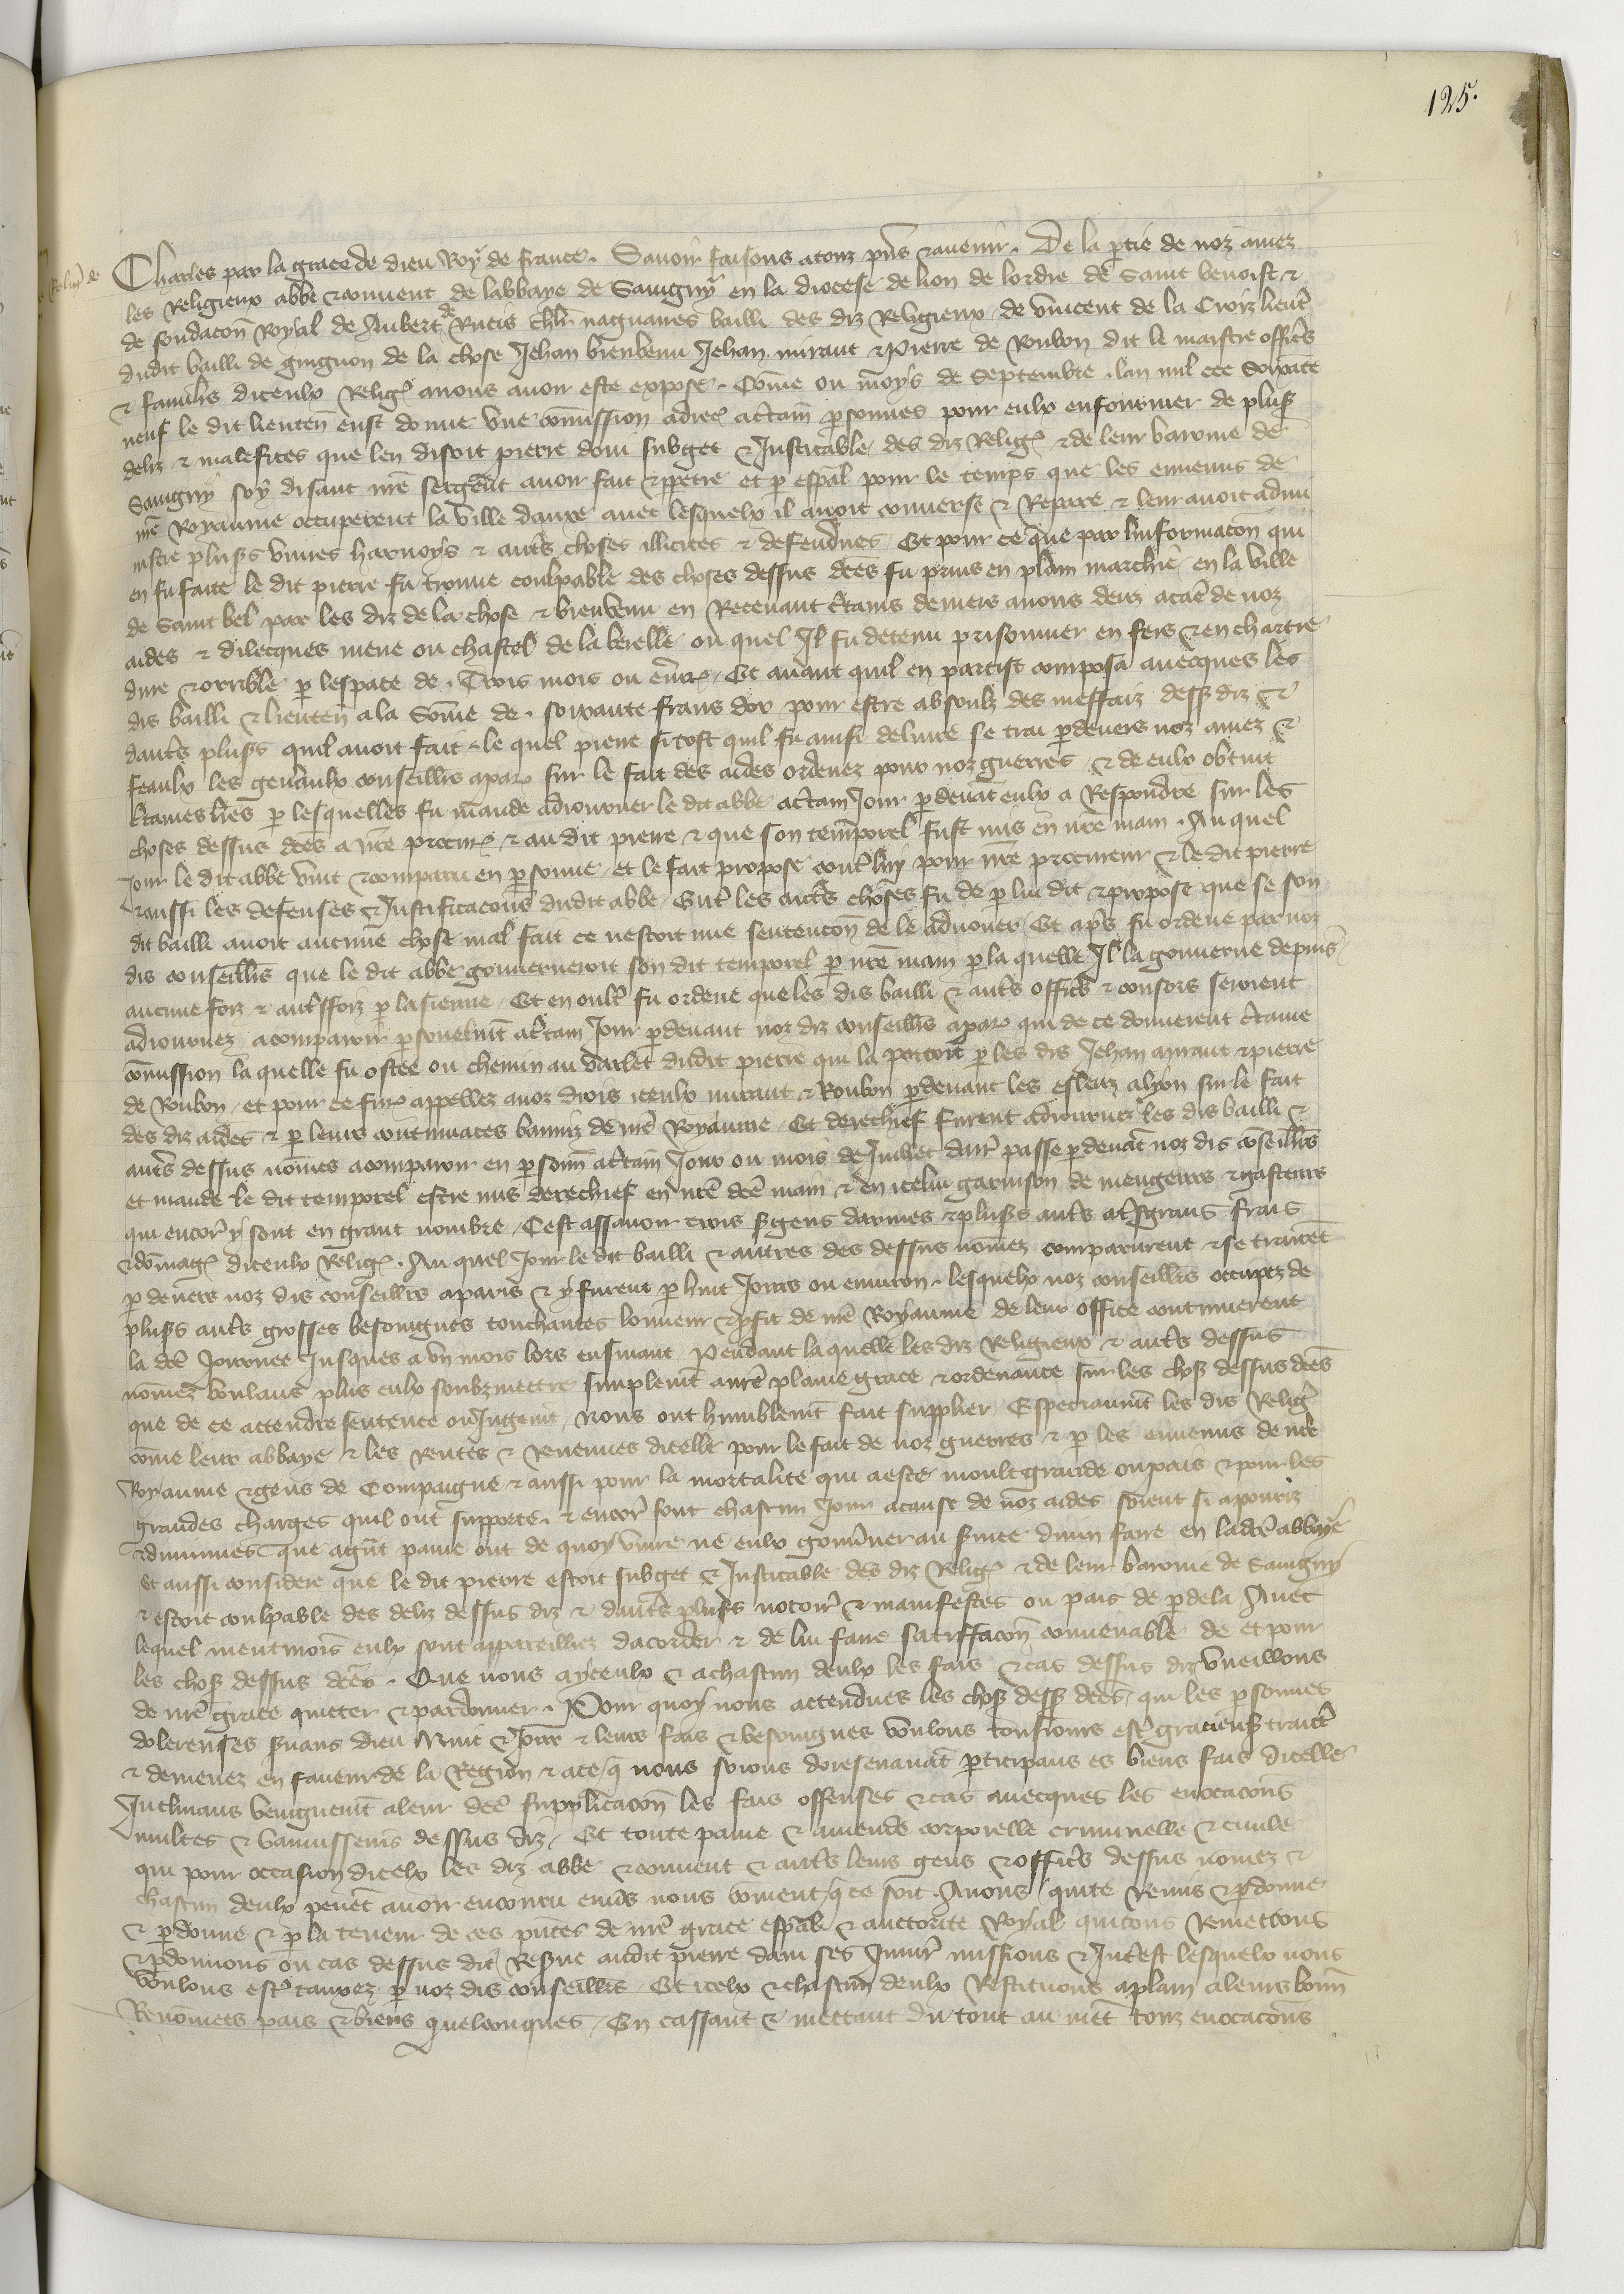 125.
Charles par la grace de dieu Roy de france. Sauoir faisons a touz pns & auenir. De la ptie de noz amez
les Religieux abbe & conuent de labbaye de Sauigny en la diocese de lion de lordre de Saint benoist &
de fondacon Royal de Aubert de Rutis chlr naguaires bailli des diz Religieux de vincent de la Croiz lieut
dudit bailli de guiguon de la chose Jehan bienvenu Jehan miraut & Pierre de Roubon dit le maistre offics
& familrs diceulx Relig auons auoir este expose. Come ou moys de Septembre lan mil ccc Soixate
neuf le dit lieuten eust donne vne comission adrec actain psonnes pour eulx enfourmer de pluss
deliz & malefices que len disoit pierre doui subget & Justicable des diz Relig & de leur baronie de
Sauigny soy disant nre sergent auoir fait & ppetre et p espal pour le temps que les ennemis de
nre Royaume occuperent la ville danxe auec lesquelx il auoit conuerse & Repaire & leur auoit admi
nistre pluss viures harnoys & auts choses illicites & defendues Et pour ce que par linformacon qui
en fu faite le dit pierre fu trouue coulpable des choses dessus dces fu prins en plain marchie en la ville
de Saint bel par les diz de la chose & bienvenu en Receuant ctains deniers a nous deuz a cae de noz
aides & dilecques mene ou chastel de la beielle ou quel Il fu detenu prisonnier en fers & en chartre
dure & orrible p lespace de Trois mois ou enuir Et auant quil en partist composa auecques les
dis bailli & lieuten a la Some de soixante frans dor pour estre absoulz des meffaiz dess diz &
dauts pluss quil auoit fait le quel pierre si tost quil fu ainsi deliure se trai pdeuers noz amez &
feaulx les genaulx conseillrs a par sur le fait des aides ordenez pour noz guerres & de eulx obtint
ctaines lres p lesquelles fu mande adiourner le dit abbe a ctain Jour pdeuat eulx a Respondre sur les
choses dessus dces a nre procur & au dit pierre & que son temporel fust mis en nre main. Au quel
Jour le dit abbe vint & comparu en psonne et le fait propose contr luy pour nre procureur & le dit pierre
& aussi les defenses & Justificacons dudit abbe Entr les auts choses fu de p lui dit & propose que se son
dit bailli auoit aucune chose mal fait ce nestoit mie sentencon de le aduouer Et aps fu ordene par noz
dis conseillrs que le dit abbe gouuerneroit son dit temporel p nre main p la quelle Il la gouuerne depuis
aucune foiz & autsfoiz p la sienne Et en oultr fu ordene que les dis bailli & auts offics & consors seroient
adiournez a comparoir psonelmt a ctain Jour pdeuant noz diz conseillrs a par qui de ce donnerent ctaine
comission la quelle fu ostee ou chemin au varlet dudit pierre qui la portoit p les dis Jehan miraut & pierre
de Roubon et pour ce fur appellez a noz drois iceulx miraut & Roubon pdeuant les esleuz a lyon sur le fait
des diz aides & p leurs contumaces banniz de nre Royaume Et derechief furent adiournez les dis bailli &
auts dessus nomes a comparoir en psonn a ctain Jour ou mois de Juillet darr passe pdeuat noz dis coseillrs
et mande le dit temporel estre mis derechief en nre dce main & en icelui garnison de mengeurs & gasteurs
qui encor y sont en grant nombre Cest assauoir trois sgens darmes & pluss auts a ts grans frais
& domag diceulx Relig. Au quel Jour le dit bailli & autres des dessus nomez comparurent & se trairet
p deuers noz dis conseillrs a paris & y furent p huit Jours ou enuiron lesquelx noz conseillrs occupez de
pluss auts grosses besoingnes touchantes lonneur & pfit de nre Royaume de leur office continuerent
la dce Journee Jusques a vn mois lors ensuiuant Pendant la quelle les diz Religieux & auts dessus
nomez voulans plus eulx soubzmettre simplemt a nre plaine grace & ordenance sur les chos dessus dces
que de ce actendre sentence ou Jugemt Nous ont humblemt fait supplier Especiaumt les dis Religr
come leur abbaye & les Rentes & Reuenues dicelle pour le fait de noz guerres & p les ennemis de nre
Royaume & gens de Compaigne & aussi pour la mortalite qui a este moult grande ou pais & pour les
grandes charges quil ont supporte & encor font chascun Jour a cause de noz aides soient si apouriz
& diminues que a gnt paine ont de quoy viure ne eulx gouuner au suice diuin faire en lad dce abbaye
et aussi considere que le dit pierre estoit subget & Justicable des diz Relig & de leur baronie de Sauigny
& estoit coulpable des deliz dessus diz & dauts pluss notoir & manifestes ou pais de pdela Auec
lequel neutmois eulx sont appareilliez dacorder & de lui faire satisfacon conuenable de et pour
les chos dessus dces. Que nous a yceulx & a chascun deulx les fais & cas dessus diz vueillons
de nre grace quicter & pardonner. Pour quoy nous actendues les chos dess dces qui les psonnes
dolereuses suans dieu Nuit & Jour & leurs fais & besoingnes voulons tousiours estr gracieus traictr
& demenez en faueur de la Region & a ce q nous soions doresenauat pticipans es biens fais dicelle
Inclinans benignemt a leur dce supplicacon les fais offenses & cas auecques les euocacons
multes & bannissems dessus diz Et toute paine & amende corporelle criminelle & ciuile
qui pour occasion dicelx les diz abbe & conuent & auts leurs gens & offics dessus nomez &
chascun deulx peuet auoir encouru enus nous coment q ce soit. Auons quite Remis & pdonne
& pdonne & p la teneur de ces pntes de nre grace espal & auctorite Royal quictons Remettons
& pdonnons ou cas dessus dit Resue audit pierre doui ses Iniur missions & Intest lesquelx nous
voulons estr tauxez p noz dis conseillrs Et icelx & chascun deulx Restituons a plain a leurs bonn
Renomees pais & biens quelconques En cassant & mettant du tout au neet touz euocacons